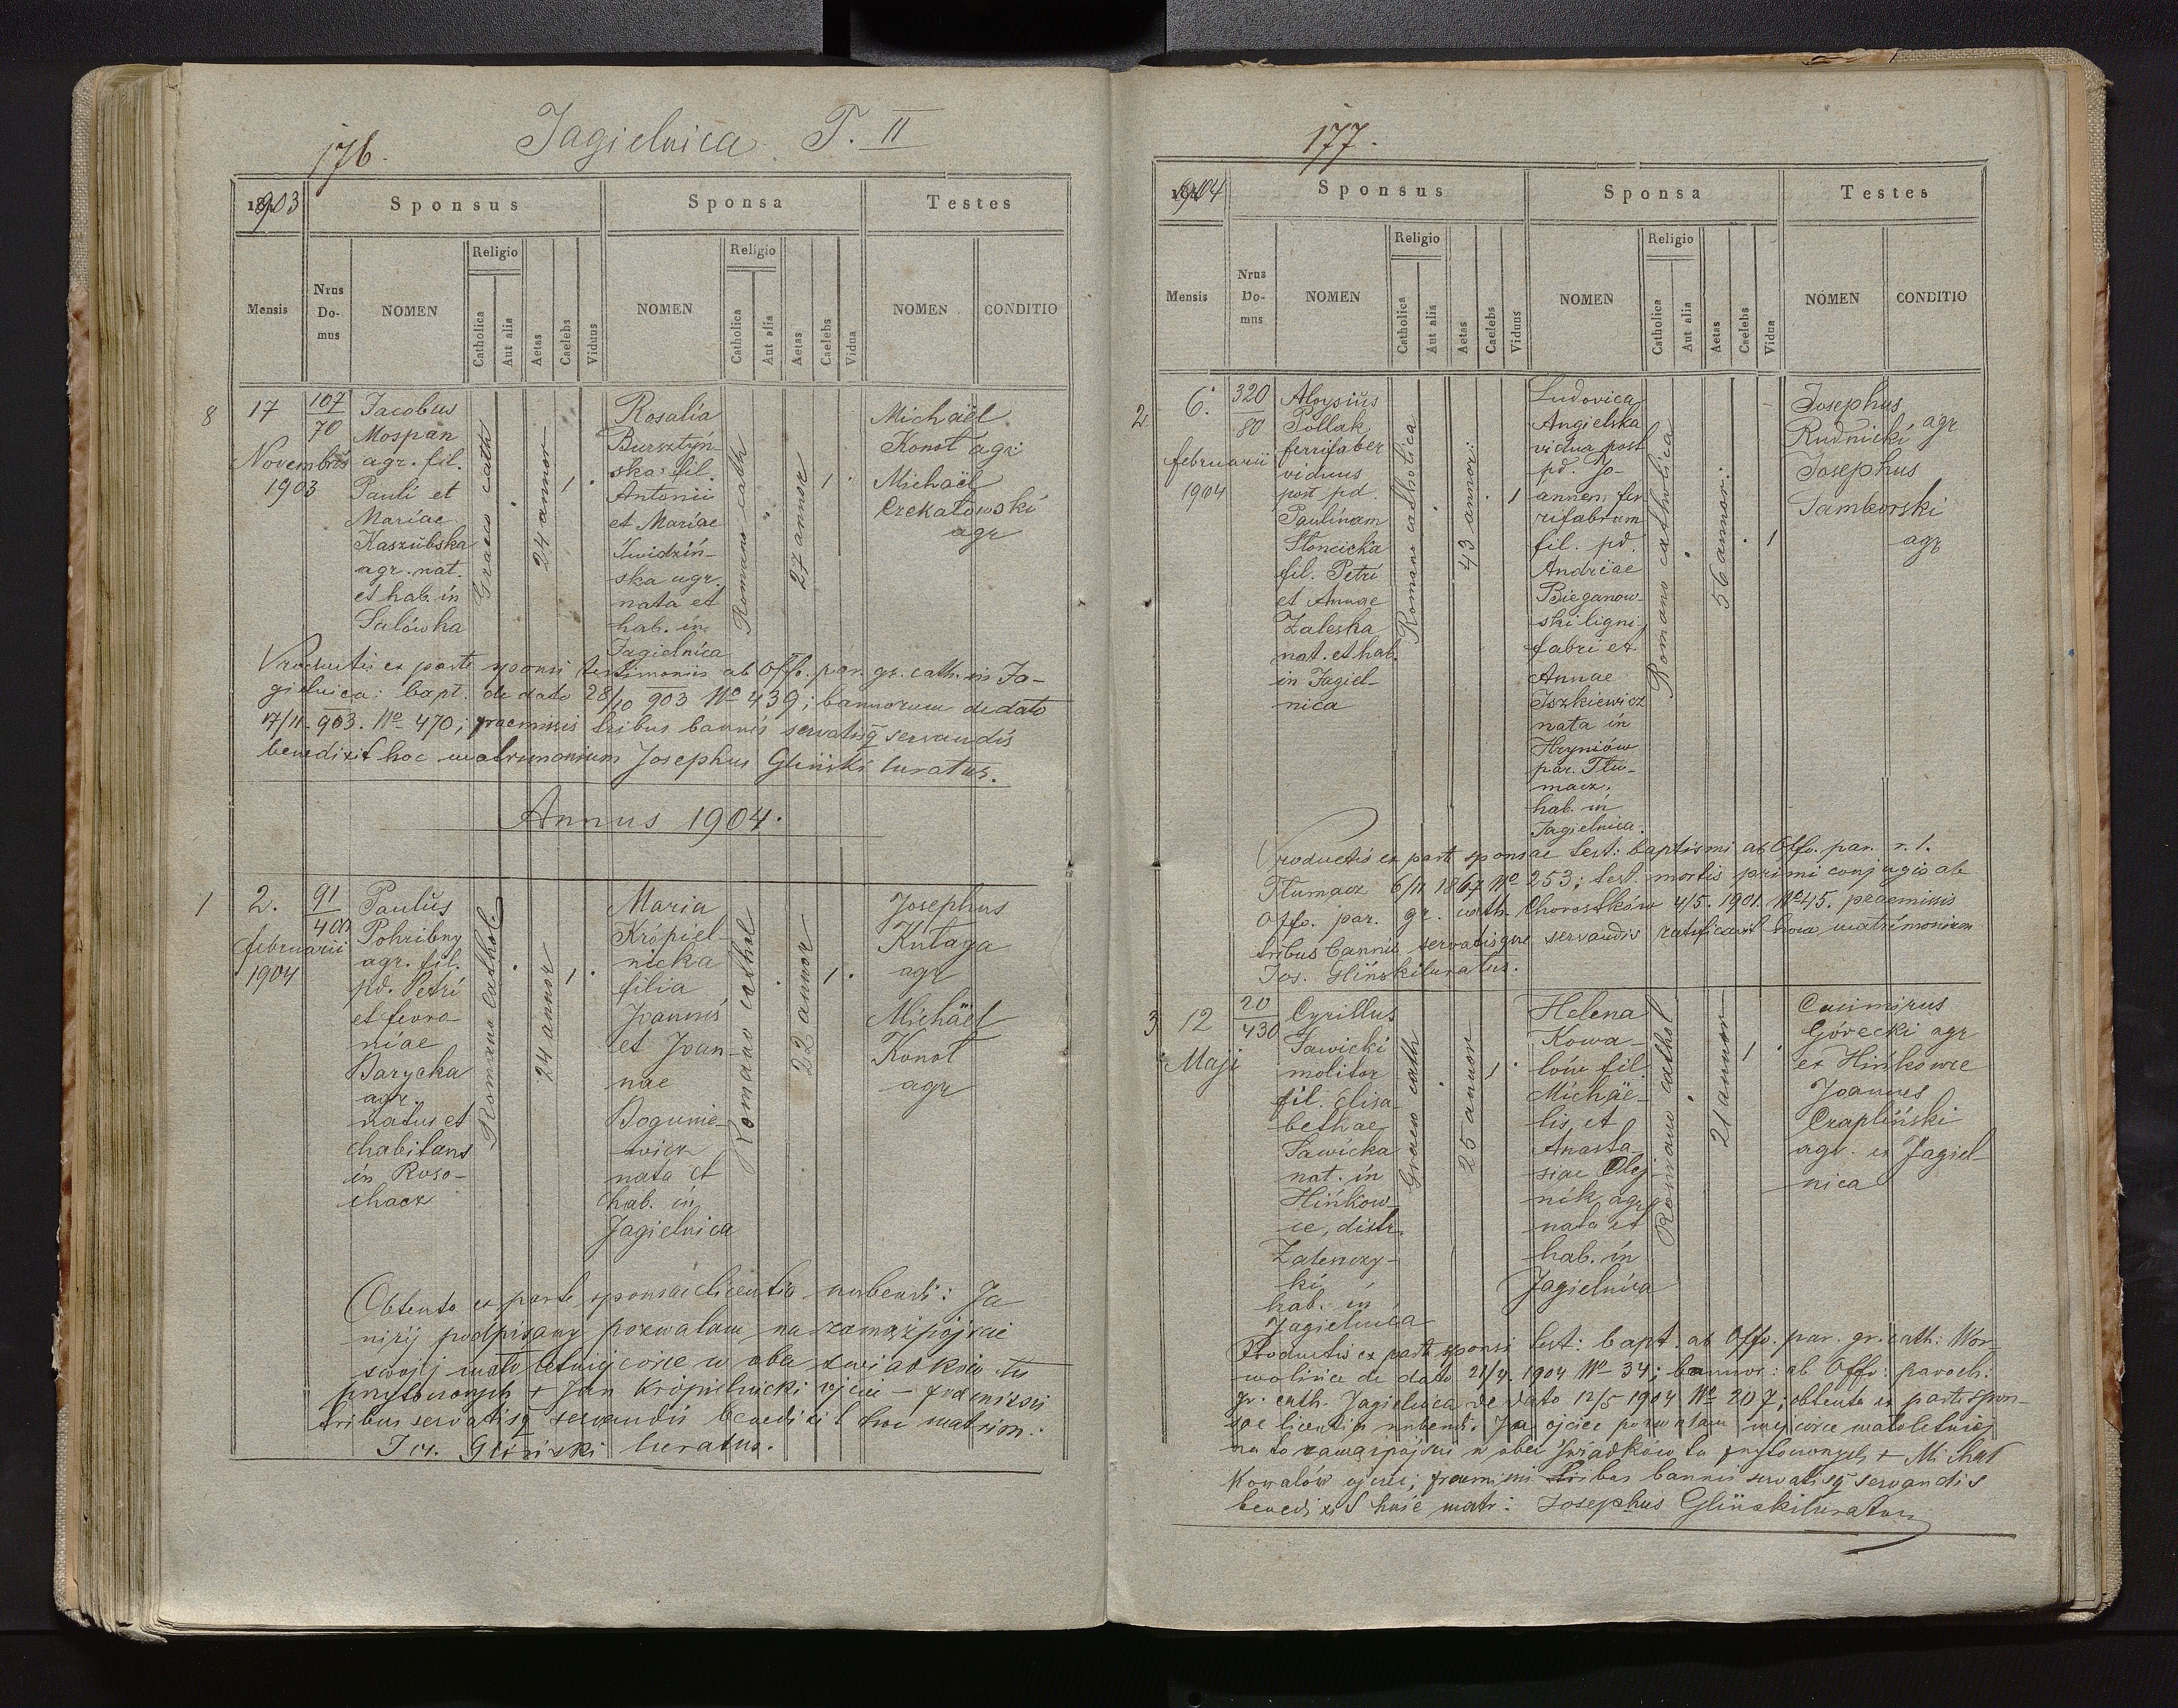 176.
Jagielnica T. II
1903
Sponsus
Sponsa
Testes
Mensis
Nrus Domus
NOMEN
Religio
Catholica
Aut alia
Aetas
Caelebs
Viduus
NOMEN
Religio
Catholica
Aut alia
Aetas
Caelebs
Vidua
NOMEN
CONDITIO
8
17
Novembris
1903
107
70
Jacobus
Mospan
agr. fil.
Pauli et
Mariae
Kaszubska
agr. nat.
et hab. in
Salówka
Graeco cath
24 annor
1
Rosalia
Bursztyń-
ska fil.
Antonii
et Mariae
Świdziń-
ska agr.
nata et
hab. in
Jagielnica
Romano cath
27 annor
1
Michaël
Konot agr
Michaël
Czekatowski
agr
Productis ex parte sponsi testimoniis ab Offo. par. gr. cath. in Ja-
gielnica: bapt. de dato 28/10 903 No 439; bannorum de dato
17/11. 903. No 470; praemissis tribus bannis servatisq servandis
benedixit hoc matrimonium Josephus Gliński Curatus.
Annus 1904.
1
2.
februarii
1904
91
400
Paulus
Pohribny
agr. fil.
pd. Petri
et fevro-
niae
Barycka
agr.
natus et
habitans
in Roso-
chacz
Romana cathol.
24 annor
1
Maria
Krópiel-
nicka
filia
Joannis
et Joan-
nae
Bogunie-
wicz
nata et
hab. in
Jagielnica
Romano cathol
22 annor
1
Josephus
Kutaga
agr
Michäel
Konot
agr
Obtenta ex parte sponsae licentia nubendi: Ja
niżej podpisany pozwalam na zamążpójście
swojej małoletniej córce w obec świadków tu
przytomonych + Jan Krópielnicki ojciec – praemissis
tribus servatisq servandis benedixit hoc matrim.
Jos. Gliński Curatus.
177.
1904
Sponsus
Sponsa
Testes
Mensis
Nrus Domus
NOMEN
Religio
Catholica
Aut alia
Aetas
Caelebs
Viduus
NOMEN
Religio
Catholica
Aut alia
Aetas
Caelebs
Vidua
NOMEN
CONDITIO
2
6.
februarii
1904
320
80
Aloysius
Pollak
ferrifaber
viduus
post pd.
Paulinam
Stoncicka
fil. Petri
et Annae
Zaleska
nat. et hab.
in Jagiel-
nica
Romano catholica
43 annor:
1
Ludovica
Angielska
vidua post
pd. Jo-
annem fer
rifabrum
fil. pd.
Andreae
Bieganow-
ski ligni-
fabri et
Annae
Iszkiewicz
nata in
Hryniów
par. Tłu-
macz.
hab. in
Jagielnica.
Romano catholica
56 annor:
1
Josephus
Rudnicki agr
Josephus
Tamborski
agr
Productis ex parte sponsae test: baptismi ab Offo. par. r. l.
Tłumacz 6/11 1867 No 253; test mortis primi conjugis ab
Offo. par. gr. cath. Chorostków 4/5. 1901. No 45. praemissis
tribus bannis servatisque servandis ratificavit hocce matrimonium
Jos. Gliński Curatus.
3
12
Maji
20
430
Cyrillus
Sawicki
molitor
fil. Elisa-
bethae
Sawicka
nat. in
Hińkow-
ce, distr.
Zaleszczy-
ki,
hab. in
Jagielnica
Graeco cath
25 annor
1
Helena
Kowa-
lów fil.
Michäe-
lis et
Anasta-
siae Olej-
nik agr
nata et
hab. in
Jagielnica
Romano cathol
21 annor
1
Casimirus
Górecki agr
ex Hińkowce
Joannes
Czapliński
agr. ex Jagiel-
nica
Productis ex parte sponsi test: bapt. ab Offo. par. gr. cath: Wor-
wolińce de dato 21/4. 1904 No 34; bannor: ab Offo: paroch:
gr. cath. Jagielnica de dato 12/5 1904 No 207; obtenta ex parte spon-
sae licentia nubendi. Ja ojciec pozwalam mej córce małoletniej
na to zamążpójście w obec świadków tu przytomonych + Michał
Kowalów ojciec; praemissis tribus bannis servatisq servandis
benedixit huic matr: Josephus Gliński Curatus